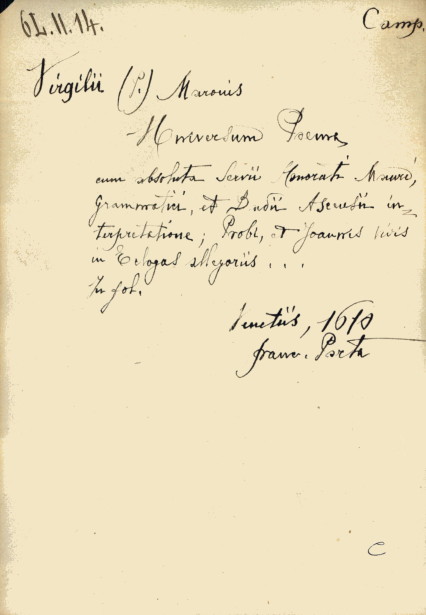 6L.II.14.
Camp.
Virgilii (P.) Maronis
Universum Poema,
cum absoluta Servii Honorati Mauri,
grammatici, et Badii Ascensii in-
terpretatione; Probi, et Joannis Vivis
in Eclogas allegoriis...
In fol.
Venetiis, 1610
franc. Porta
C